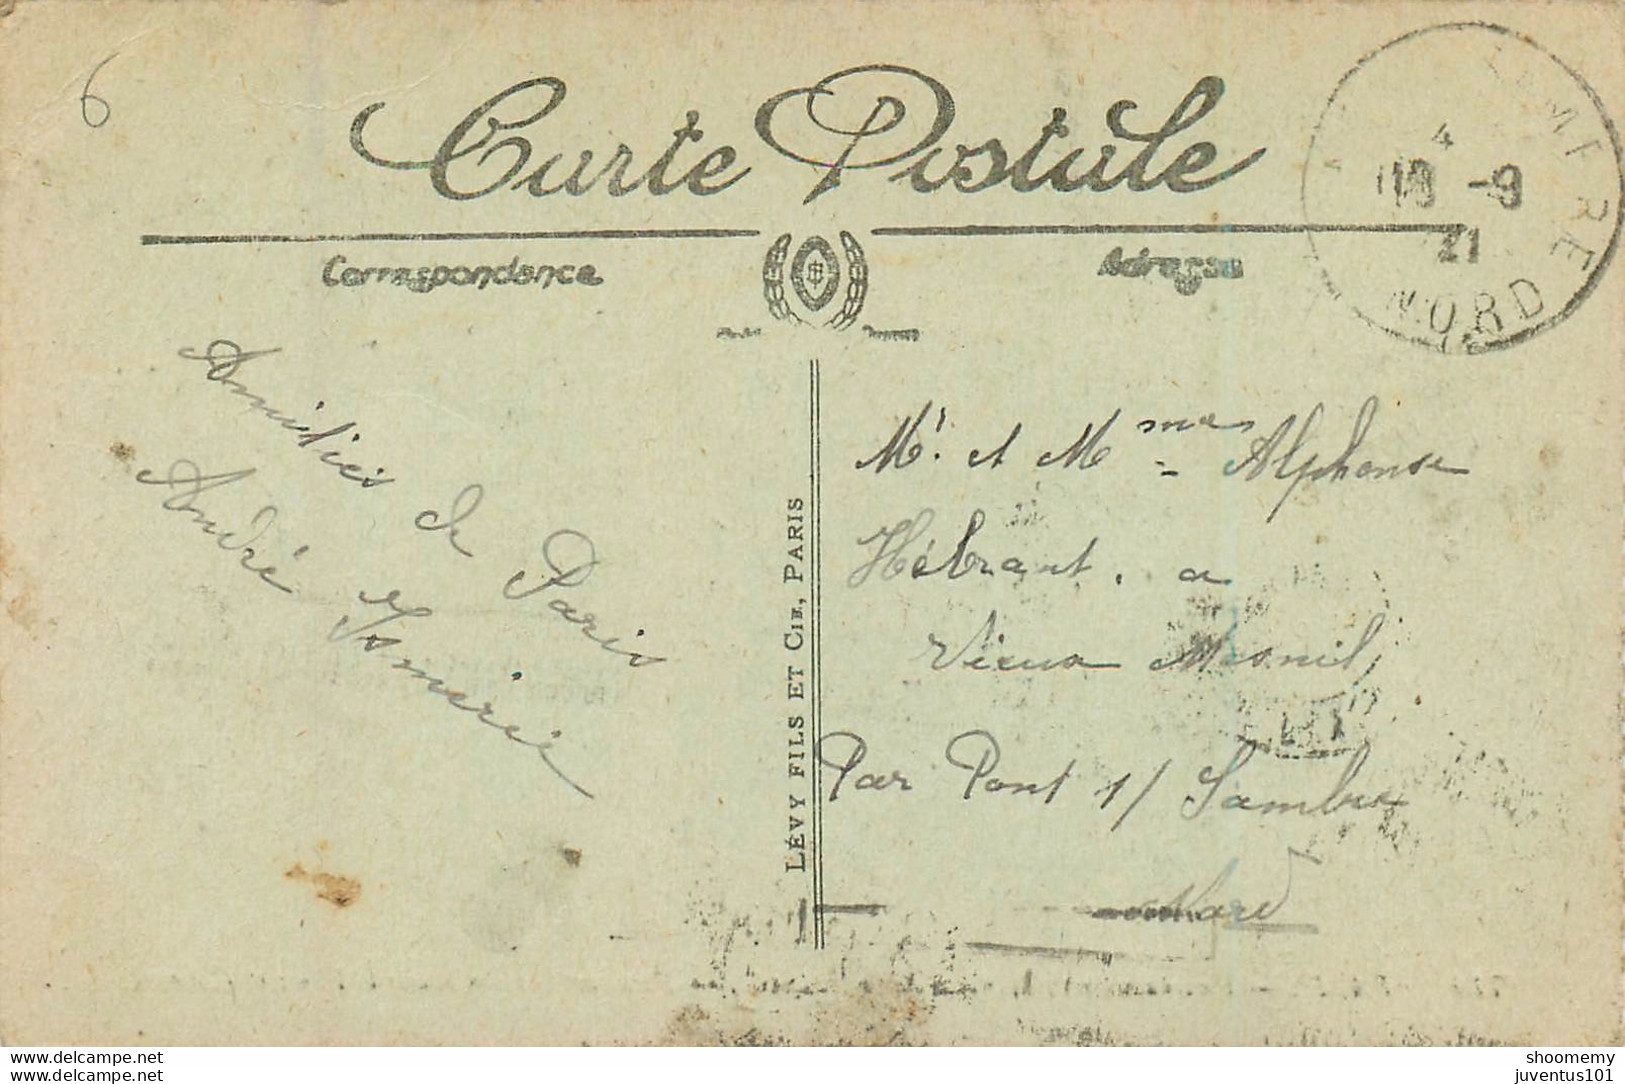 6
Carte Postale
Correspondance
Adresse
4
19 -9
21
NORD
Amitiés de Paris
André
LÉVY FILS ET CIE., PARIS
Mr. et Mmes Alphonse
Hébrant. a
Vieux Mesnil,
Par Pont s/ Sambre
Nord
www.delcampe.net
www.delcampe.net
shoomemy
juventus101